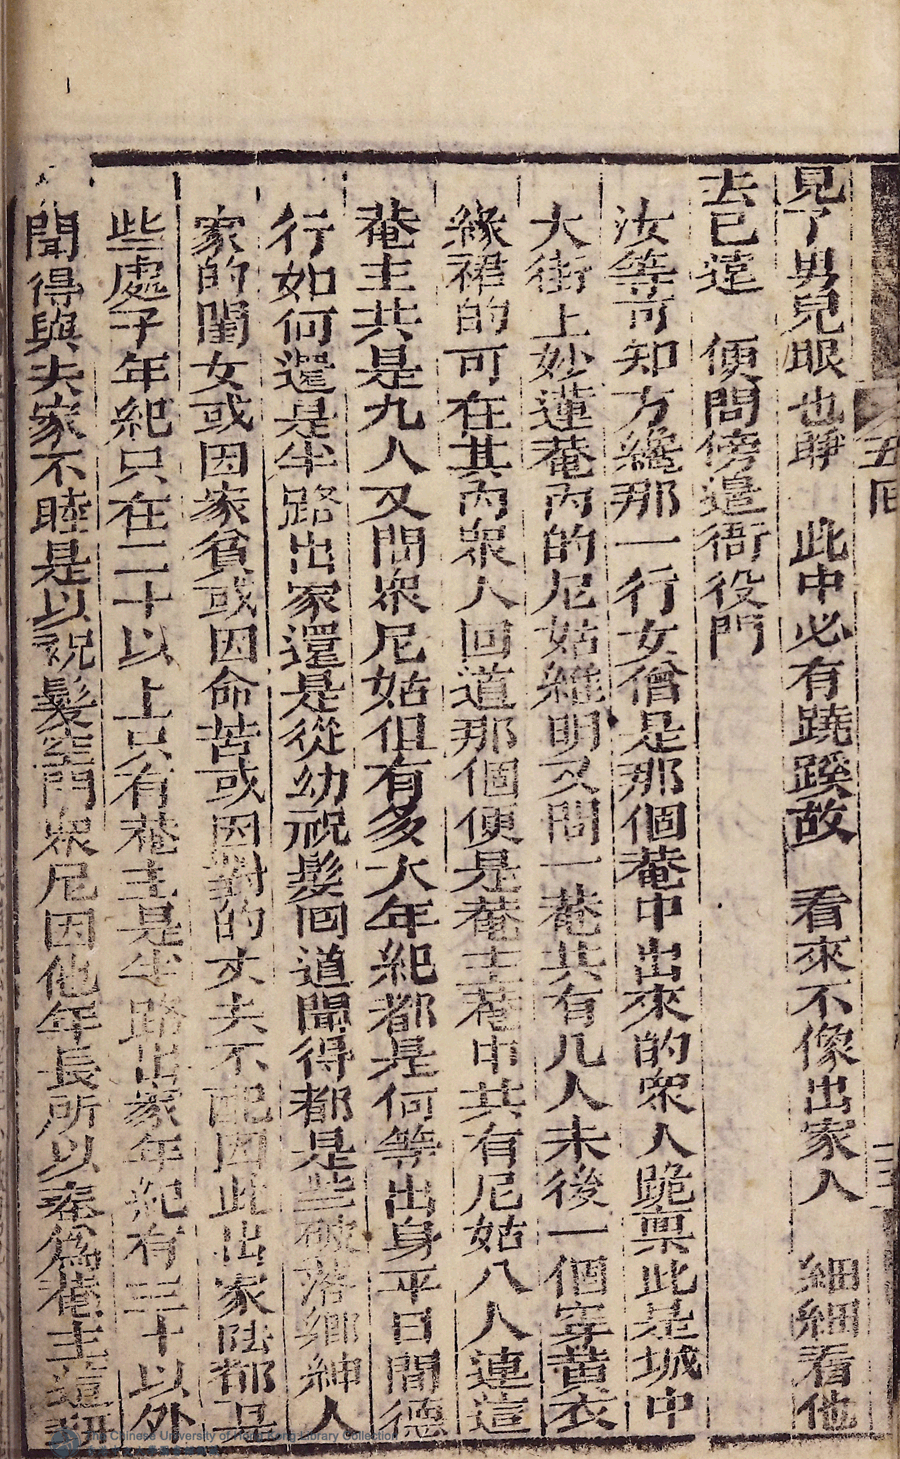 五回
見了男兒眼也睜 此中必有蹺蹊故 看來不像出家人 細細看他
去已遠 便問傍邊衙役門
汝等可知方纔那一行女僧是那個菴中出來的衆人跪禀此是城中
大街上妙蓮菴內的尼姑維明又問一菴共有几人未後一個穿黄衣
緣裙的可在其內衆人回道那個便是菴主菴中共有尼姑八人連這
菴主共是九人又問衆尼姑俱有多大年紀都是何等出身平日聞德
行如何還是半路出家還是從幼祝髮回道聞得都是些破落鄉紳人
家的閨女或因家貧或因命苦或因對的丈夫不配因此出家陸都
些處子年紀只在二十以上只有菴主是半路出家年紀有三十以外
聞得與夫家不睦是以祝髮空門衆尼因他年長所以奉爲菴主這
The Chinese University of Hong Kong Library Collection